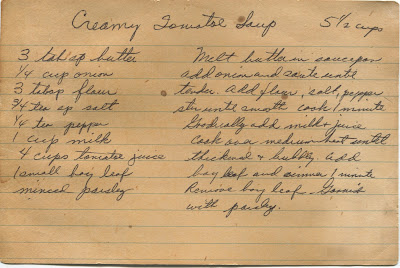 Creamy Tomatoe Soup 5 1/2 cups
3 tab sp butter
1/4 cup onion
3 tabsp flour
3/4 tea sp salt
1/4 tea peppe
1 cup milk
4 cups tomatoe juice
1 small bay leaf
minced parsley
Melt butter in saucepan
add onion and saute until
tender. Add flour, salt, pepper
stir until smooth cook 1 minute
Gradually add milk & juice
cook over medium heat until
thickened & bubbly add
bay leaf and simmer 1 minute
Remove bay leaf. Garnish
with parsley.